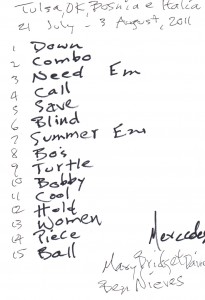 Tulsa, OK, Bosnia e Italia
21 July - 3 August, 2011
1 Down
2 Combo
3 Need Em
4 Call
5 Save
6 Blind
7 Summer Em
8 Bo's
9 Turtle
10 Bobby
11 Cool
12 Hold
13 Women
14 Piece
15 Ball
Mercedes
Mary Bridget Davies
Ben Nieves